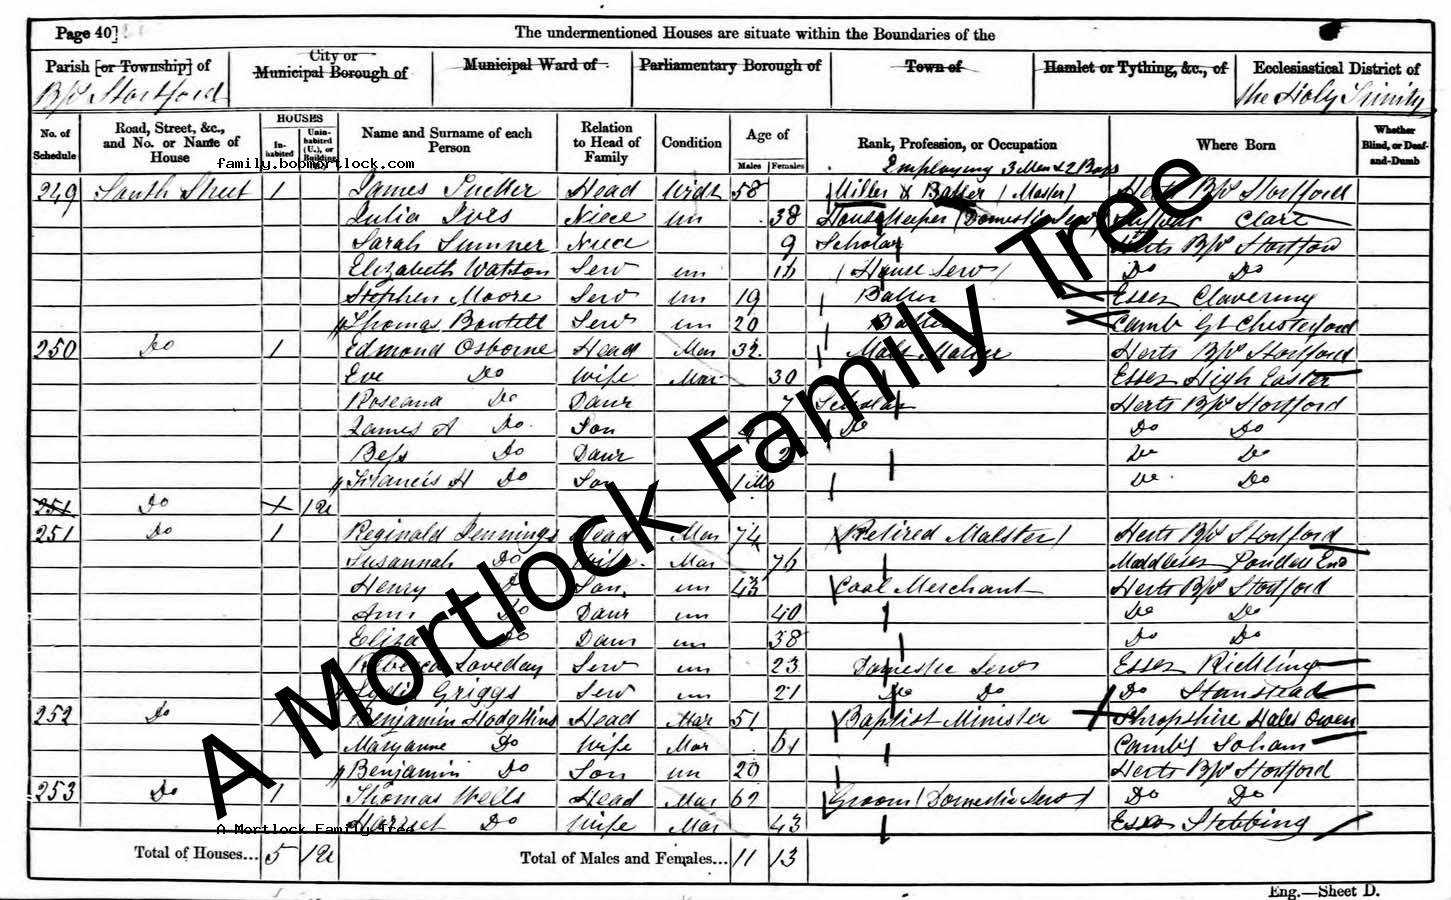 Page 40]
The undermentioned Houses are situate within the Boundaries of the
Parish [or Township] of
City or Municipal Borough of
Municipal Ward of
Parliamentary Borough of
Town of
Hamlet or Tything, &c., of
Ecclesiastical District of
Bp's Stortford
the Holy Trinity
No. of Schedule
Road, Street, &c., and No. or Name of House
HOUSES
In-habited
Unin-habited (U.), or Building
Name and Surname of each Person
Relation to Head of Family
Condition
Age of
Males
Females
Rank, Profession, or Occupation
Where Born
Whether Blind, or Deaf-and-Dumb
family.bobmortlock.com
Employing 3 Men & 2 Boys
249 South Street 1 James Tucker Head Widr 58 Miller & Baker (Master) Herts Bp's Stortford
Julia Ives Niece un 38 Housekeeper (Domestic Serv) Clare
Sarah Sumner Niece 9 Scholar Herts Bp's Stortford
Elizabeth Watson Serv un 16 (House Serv) Do Do
Stephen Moore Serv un 19 Baker Essex Clavering
Thomas Serv un 20 Baker Camb Gt Chesterford
250 Do 1 Edmond Osborne Head Mar 32 Malt Maker Herts Bp's Stortford
Eve Do Wife Mar 30 Essex High Easter
Roseana Do Daur 7 Scholar Herts Bp's Stortford
James A Do Son Do Do Do
Bess Do Daur 2 Do Do
Francis H Do Son 1 Mo Do Do
251 Do 1 1U
251 Do 1 Reginald Jennings Head Mar 74 (Retired Malster) Herts Bp's Stortford
Susannah Do Wife Mar 76 Middlesex Ponders End
Henry Do Son un 43 Coal Merchant Herts Bp's Stortford
Ann Do Daur un 40 Do Do
Eliza Do Daur un 38 Do Do
Rebecca Loveday Serv un 23 Domestic Serv Essex Rickling
Lydia Griggs Serv un 21 Do Do Do Stanstead
252 Do 1 Benjamin Hodgkins Head Mar 51 Baptist Minister Shropshire Hales Owen
Maryanne Do Wife Mar 61 Cambs Soham
Benjamin Do Son un 20 Herts Bp's Stortford
253 Do 1 Thomas Wells Head Mar 62 Groom (Domestic Serv) Do Do
Harriet Do Wife Mar 43 Essex Stebbing
A Mortlock Family Tree
Total of Houses... 5 1U Total of Males and Females... 11 13
Eng.—Sheet D.
A Mortlock Family Tree